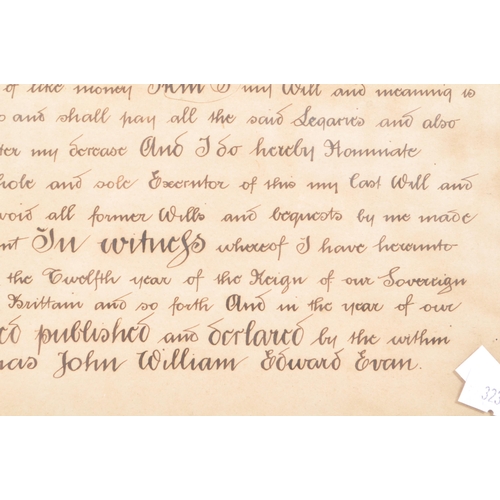 of like money Item I my Will and meaning is
and shall pay all the said Legacies and also
ter my decease And I do hereby Nominate
hole and sole Executor of this my last Will and
void all former Wills and bequests by me made
nt In witness whereof I have hereunto
the Twelfth year of the Reign of our Sovereign
Brittain and so forth And in the year of our
ed published and declared by the within
mas John William Edward Evan.
323